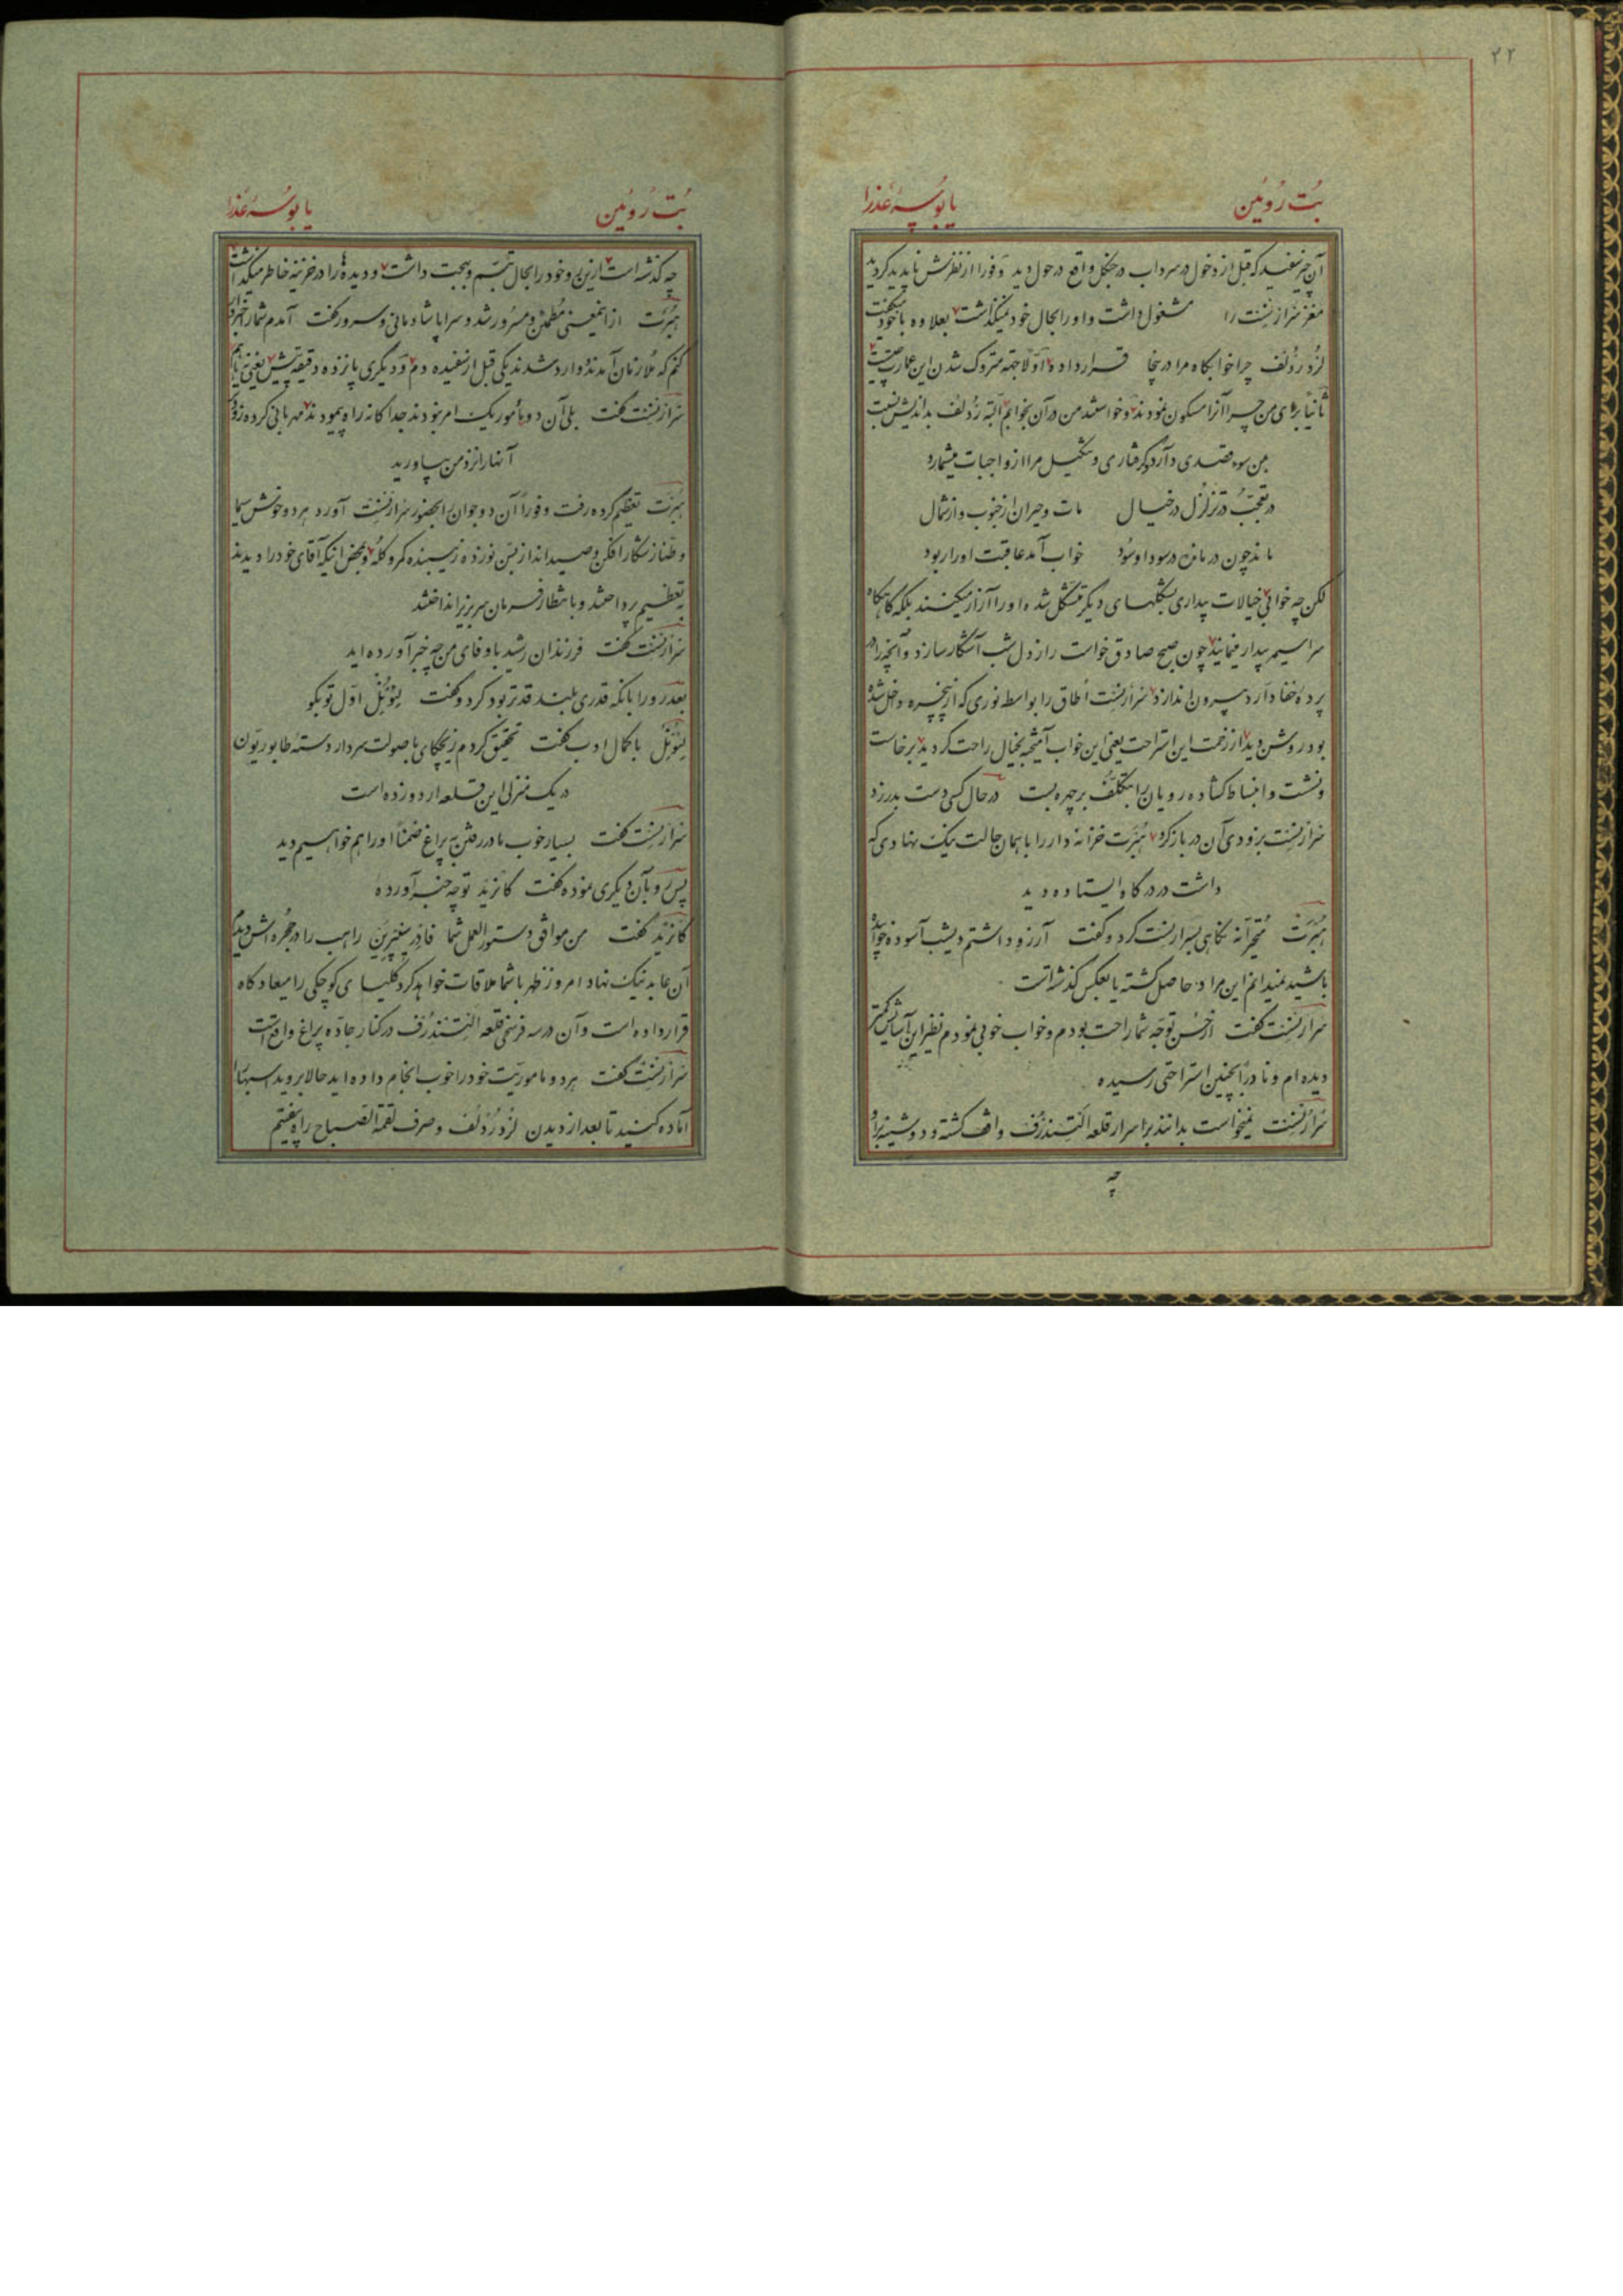 ۲۲
بُت رُوئین یا بُوسهٔ عُذرا
آن چیز سفید که قبل از دخول در سرداب در جنگل واقع در حول دید و فورا از نظرش ناپدید گردید
مغز سَرارنِسْت را مشغول داشت و او را بحال خود نمیگذاشت بعلاوه با خود میگفت
لُرد رُدُلف چرا خوابگاه مرا در اینجا قرار داده اوّلا جهة متروک شدن این عمارت چیست
ثانیاً برای من چرا آنرا مسکون نمودند و خواستند من در آن بخوابم البته رُدُلف بداندیش نسبت
بمن سوء قصدی دارد گرفتاری و تنکیل مرا از واجبات میشمارد
در تعجّب در تزلزل در خیال مات و حیران از جنوب و از شمال
ماند چون درمانده در سودا و سُود خواب آمد عاقبت او را ربود
لکن چه خوابی خیالات بیداری بشکلهای دیگر متشکل شده او را آزار میکنند بلکه گاهگاه
سراسیمه بیدار مینماید چون صبح صادق خواست راز دل شب آشکار سازد و آنچه را در
پرده خفا دارد بیرون اندازد سَرارنِسْت اطاق را بواسطه نوری که از پنجره داخل شده
بود روشن دید از زحمت این استراحت یعنی این خواب آمیخته بخیال راحت گردید برخاست
و نشست و انبساط گشاده رویان را بتکلّف بر چهره بست در حال کسی دست بدر زد
سَرارنِسْت بزودی آن در باز کرد هُبَرت خزانه دار را با همان حالت نیک نهادی که
داشت در درگاه ایستاده دید
هُبَرت متحیّرانه نگاهی بسَرارنِسْت کرد و گفت آرزو داشتم دیشب آسوده خوابیده
باشید نمیدانم این مراد حاصل گشته یا بعکس گذشته است
سَرارنِسْت گفت از حُسن توجّه شما راحت بودم و خواب خوبی نمودم نظیر این آسایش کمتر
دیده ام و نادراً بچنین استراحتی رسیده
سَرارنِسْت نمیخواست بدانند بر اسرار قلعه الْتِندُرُف واقف گشته و دوشینه بر او
چه
بُت رُوئین یا بُوسهٔ عُذرا
چه گذشته است ازین رو خود را بحال تبسّم و بهجت داشت و دیده ها را در خزینه خاطر میگذاشت
هُبَرت از اینمعنی مُطمئن و مسرُور شد و سراپا شادمانی و سرور گفت آمدم شما را خبردار
کنم که ملازمان آمدند وارد شدند یکی قبل از سفیده دم و دیگری پانزده دقیقه پیش یعنی
سَرارنِسْت گفت بلی آن دو مأمور یک امر نبودند جداگانه راه پیمودند مهربانی کرده زود
آنها را نزد من بیاورید
هُبَرت تعظیم کرده رفت و فوراً آن دو جوان را بحضور سَرارنِسْت آورد هر دو خوش سیما
و طنّاز شکار افکن و صید انداز زیبنده کمر و کله و بمحض اینکه آقای خود را دیدند
به تعظیم پرداختند و بانتظار فرمان سر بزیر انداختند
سَرارنِسْت گفت فرزندان رشید باوفای من چه خبر آورده اید
بعد رو را بآنکه قدری بلند قدتر بود کرد و گفت لِیُونِل اوّل تو بگو
لِیُونِل با کمال ادب گفت تحقیق کردم زیچکای باصولت سردار دسته طابوریّون
در یک منزلی این قلعه اردو زده است
سَرارنِسْت گفت بسیار خوب ما در رفتن به پراغ ضمناً او را هم خواهیم دید
پس رو بآن دیگری نموده گفت کانْرَد تو چه خبر آورده
کانْرَد گفت من موافق دستور العمل شما فادِر سِیْپرِیَن راهب را در حجره اش دیدم
آن عابد نیک نهاد امروز ظهر با شما ملاقات خواهد کرد کلیسای کوچکی را میعادگاه
قرار داده است و آن در سه فرسخی قلعه الْتِندُرُف در کنار جاده پراغ واقع است
سَرارنِسْت گفت هر دو ماموریّت خود را خوب انجام داده اید حالا بروید اسبها را
آماده کنید تا بعد از دیدن لُرد رُدُلف و صرف لقمة الصّباح راه بیفتیم